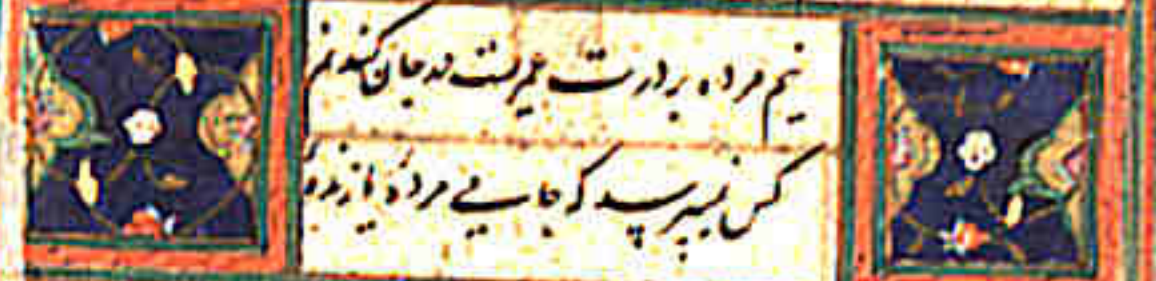 نیم مرده بر درت عمریست در جان کندنم
کس نمیپرسد که جامی مرده یا زنده